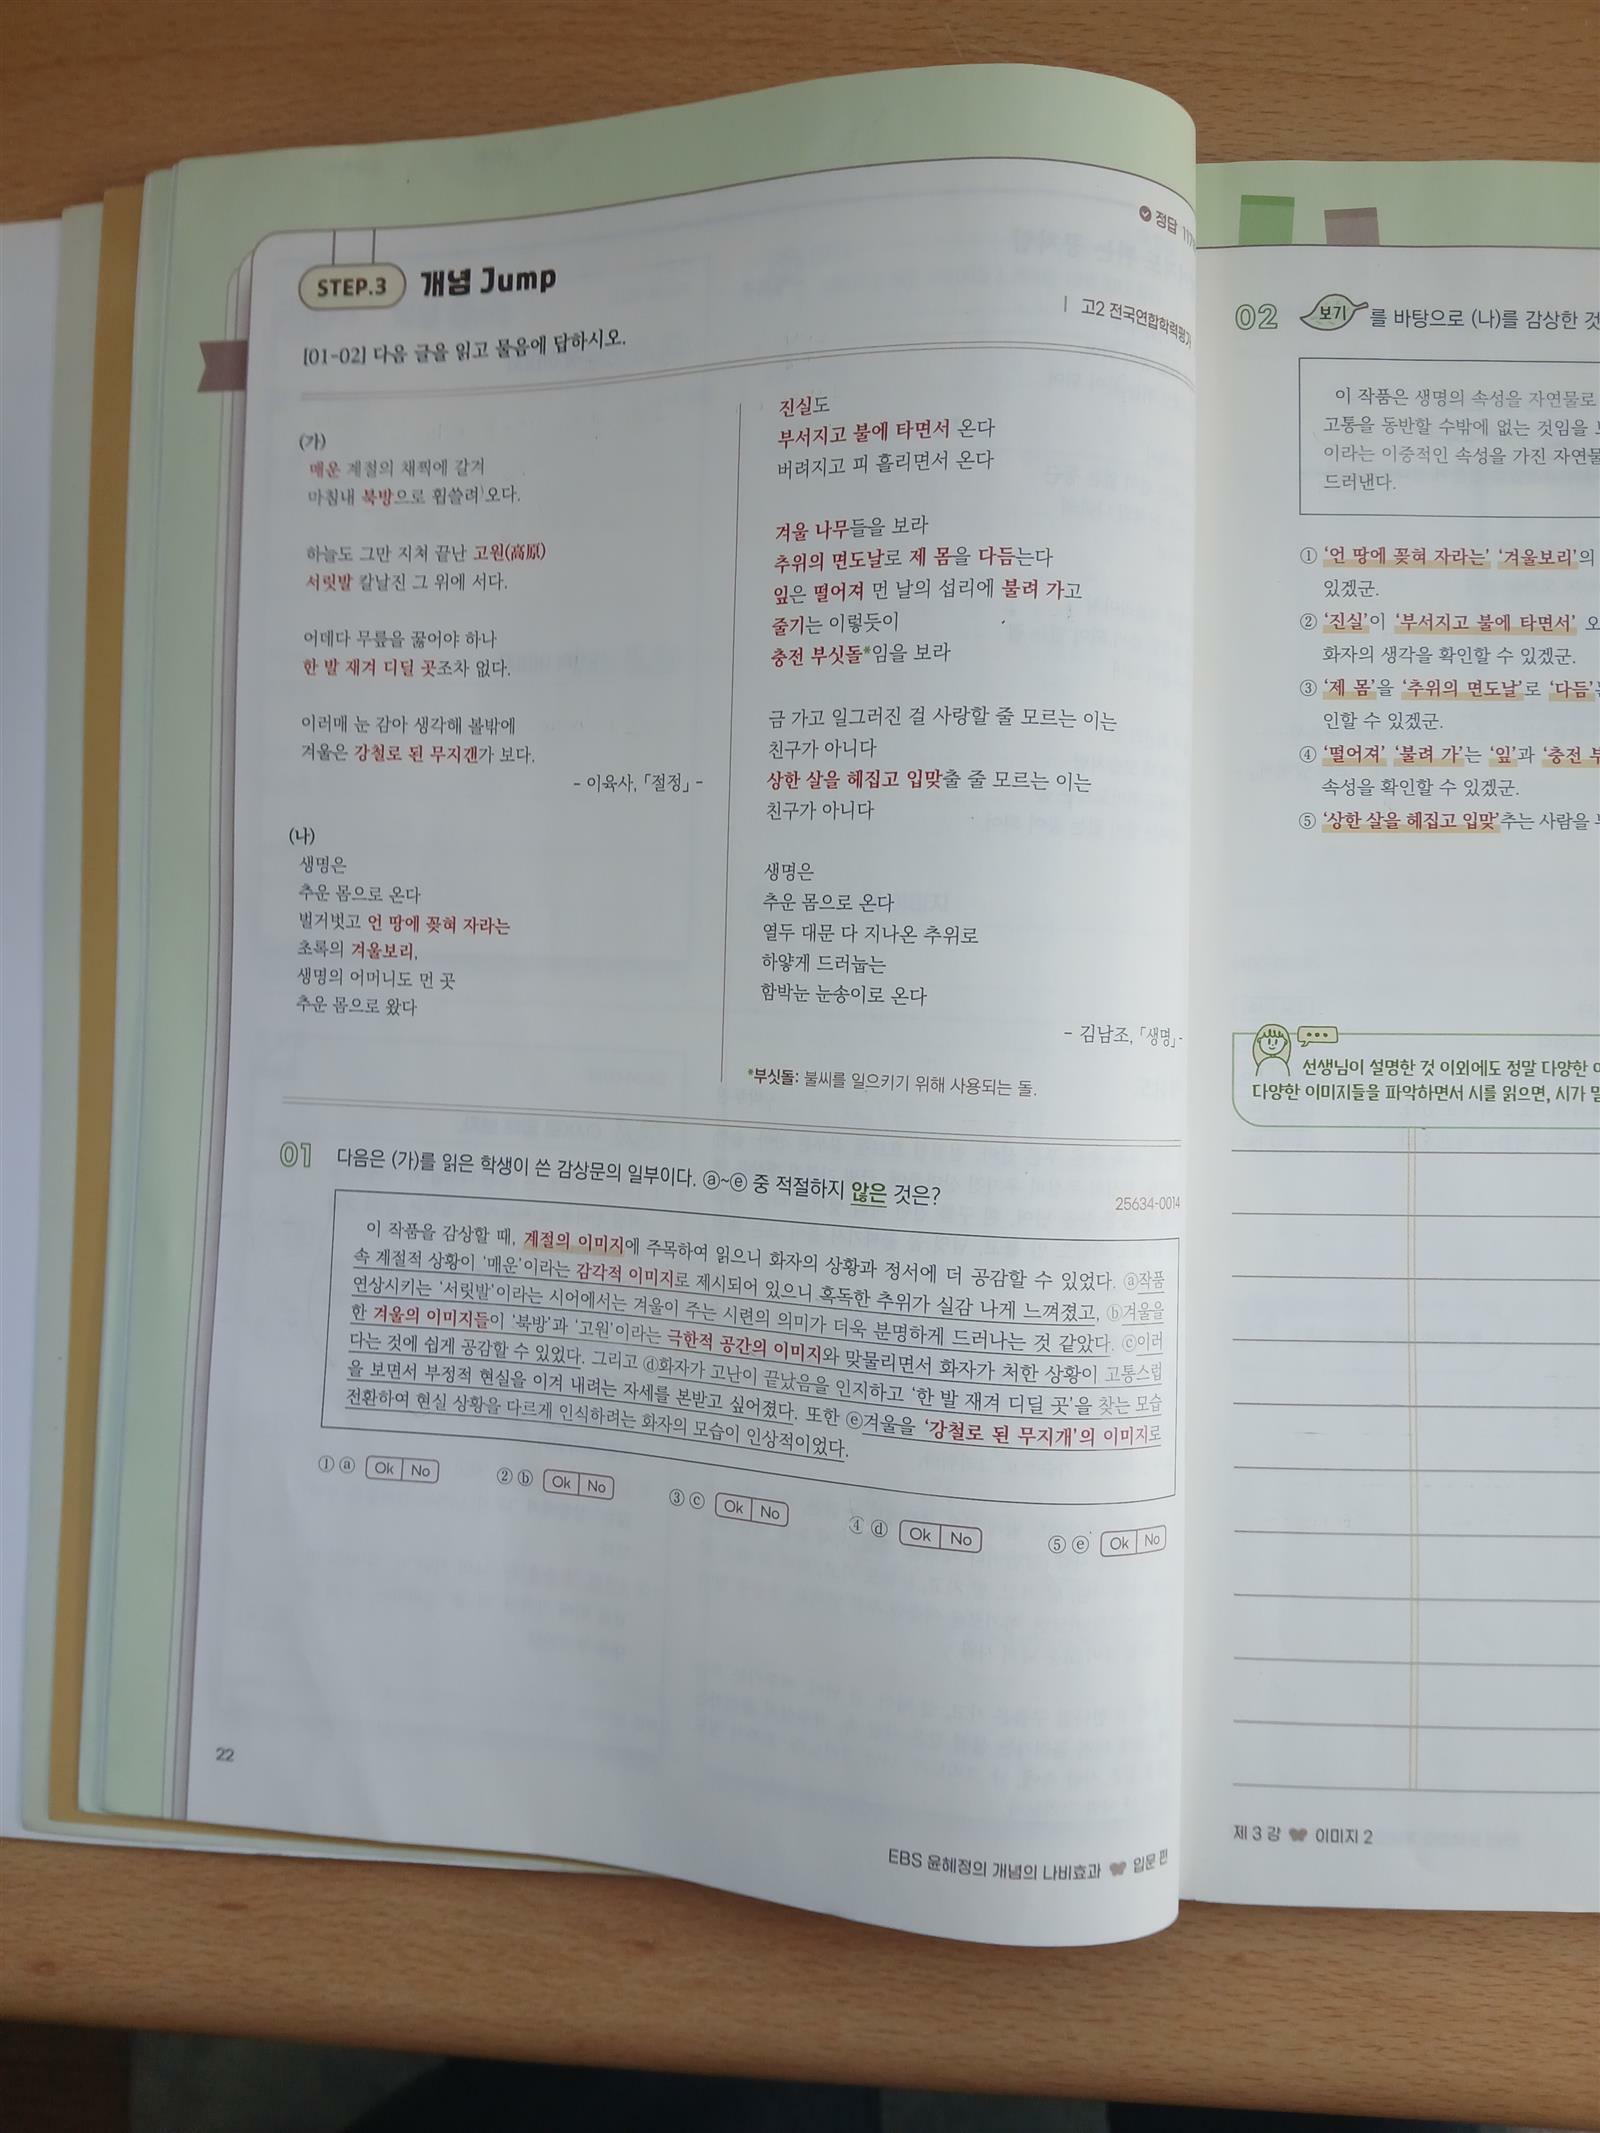 정답
STEP.3 개념 Jump
고2 전국연합학력평가
[01-02] 다음 글을 읽고 물음에 답하시오.
(가)
매운 계절의 채찍에 갈겨
마침내 북방으로 휩쓸려 오다.
하늘도 그만 지쳐 끝난 고원(高原)
서릿발 칼날진 그 위에 서다.
어데다 무릎을 꿇어야 하나
한 발 재겨 디딜 곳조차 없다.
이러매 눈 감아 생각해 볼밖에
겨울은 강철로 된 무지갠가 보다.
- 이육사, 「절정」 -
(나)
생명은
추운 몸으로 온다
벌거벗고 언 땅에 꽂혀 자라는
초록의 겨울보리,
생명의 어머니도 먼 곳
추운 몸으로 왔다
진실도
부서지고 불에 타면서 온다
버려지고 피 흘리면서 온다
겨울 나무들을 보라
추위의 면도날로 제 몸을 다듬는다
잎은 떨어져 먼 날의 섭리에 불려 가고
줄기는 이렇듯이
충전 부싯돌*임을 보라
금 가고 일그러진 걸 사랑할 줄 모르는 이는
친구가 아니다
상한 살을 헤집고 입맞출 줄 모르는 이는
친구가 아니다
생명은
추운 몸으로 온다
열두 대문 다 지나온 추위로
하얗게 드러눕는
함박눈 눈송이로 온다
- 김남조, 「생명」 -
*부싯돌: 불씨를 일으키기 위해 사용되는 돌.
01 다음은 (가)를 읽은 학생이 쓴 감상문의 일부이다. ⓐ~ⓔ 중 적절하지 않은 것은?
25634-0014
이 작품을 감상할 때, 계절의 이미지에 주목하여 읽으니 화자의 상황과 정서에 더 공감할 수 있었다. ⓐ작품
속 계절적 상황이 ‘매운’이라는 감각적 이미지로 제시되어 있으니 혹독한 추위가 실감 나게 느껴졌고, ⓑ겨울을
연상시키는 ‘서릿발’이라는 시어에서는 겨울이 주는 시련의 의미가 더욱 분명하게 드러나는 것 같았다. ⓒ이러
한 겨울의 이미지들이 ‘북방’과 ‘고원’이라는 극한적 공간의 이미지와 맞물리면서 화자가 처한 상황이 고통스럽
다는 것에 쉽게 공감할 수 있었다. 그리고 ⓓ화자가 고난이 끝났음을 인지하고 ‘한 발 재겨 디딜 곳’을 찾는 모습
을 보면서 부정적 현실을 이겨 내려는 자세를 본받고 싶어졌다. 또한 ⓔ겨울을 ‘강철로 된 무지개’의 이미지로
전환하여 현실 상황을 다르게 인식하려는 화자의 모습이 인상적이었다.
① ⓐ Ok No ② ⓑ Ok No ③ ⓒ Ok No ④ ⓓ Ok No ⑤ ⓔ Ok No
22
EBS 윤혜정의 개념의 나비효과 입문 편
02 보기 를 바탕으로 (나)를 감상한 것
이 작품은 생명의 속성을 자연물로
고통을 동반할 수밖에 없는 것임을
이라는 이중적인 속성을 가진 자연물
드러낸다.
① ‘언 땅에 꽂혀 자라는’ ‘겨울보리’의
있겠군.
② ‘진실’이 ‘부서지고 불에 타면서’ 오
화자의 생각을 확인할 수 있겠군.
③ ‘제 몸’을 ‘추위의 면도날’로 ‘다듬’는
인할 수 있겠군.
④ ‘떨어져’ ‘불려 가’는 ‘잎’과 ‘충전
속성을 확인할 수 있겠군.
⑤ ‘상한 살을 헤집고 입맞’추는 사람을
선생님이 설명한 것 이외에도 정말 다양한
다양한 이미지들을 파악하면서 시를 읽으면, 시가
제 3 강 이미지 2